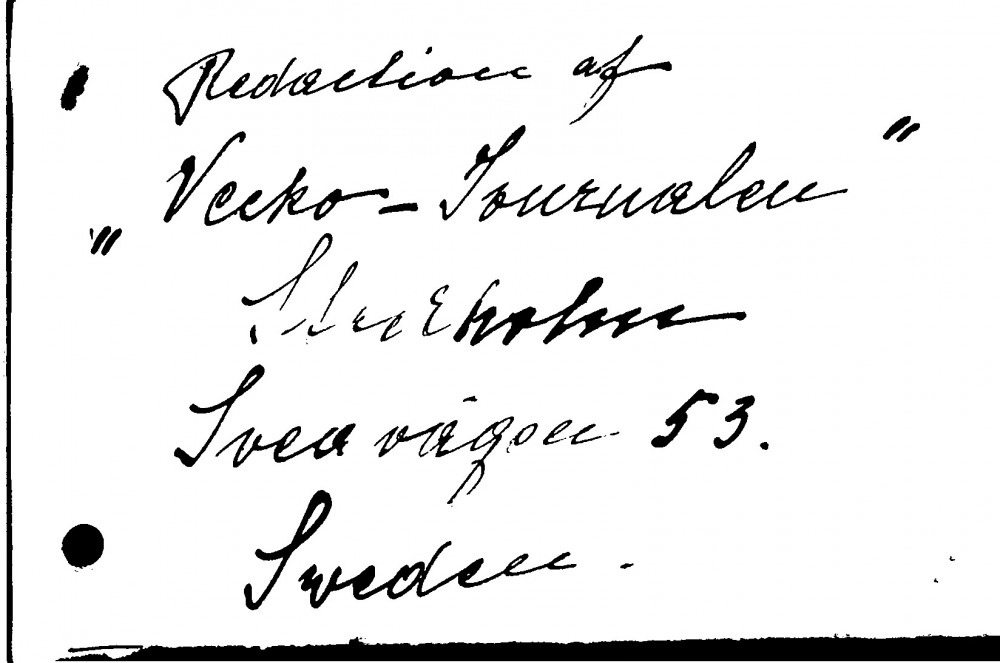 Redaction af
"Vecko-Journalen"
Stockholm
Sveavägen 53.
Sweden.